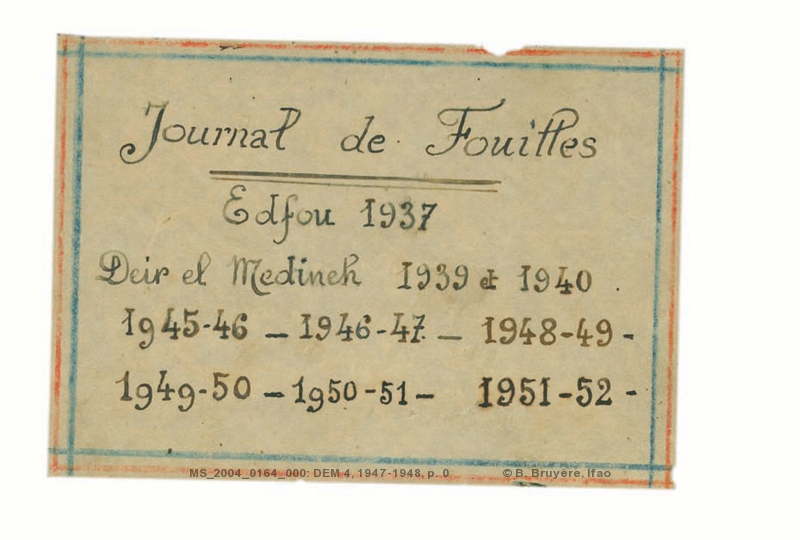 Journal de Fouilles
Edfou 1937
Deir el Medineh 1939 et 1940.
1945-46 – 1946-47 – 1948-49 -
1949-50 – 1950-51 – 1951-52 -
MS_2004_0164_000: DEM 4, 1947-1948, p. 0 © B. Bruyère, Ifao